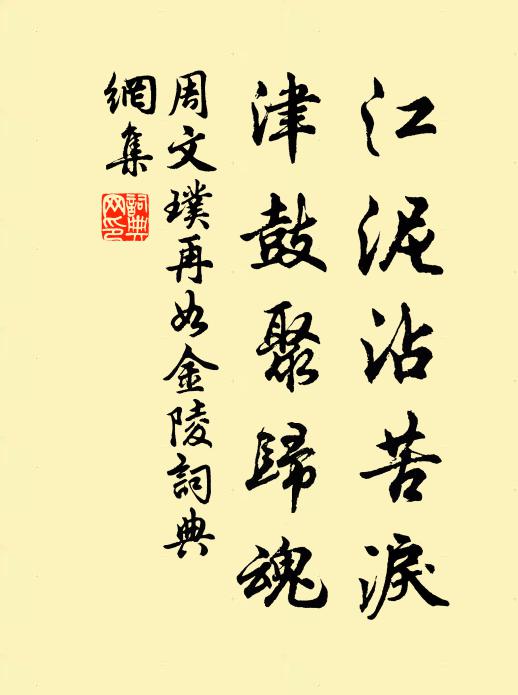 江泥沾苦淚
津鼓聚歸魂
周文璞再如金陵詞典
網集
詞典
网印